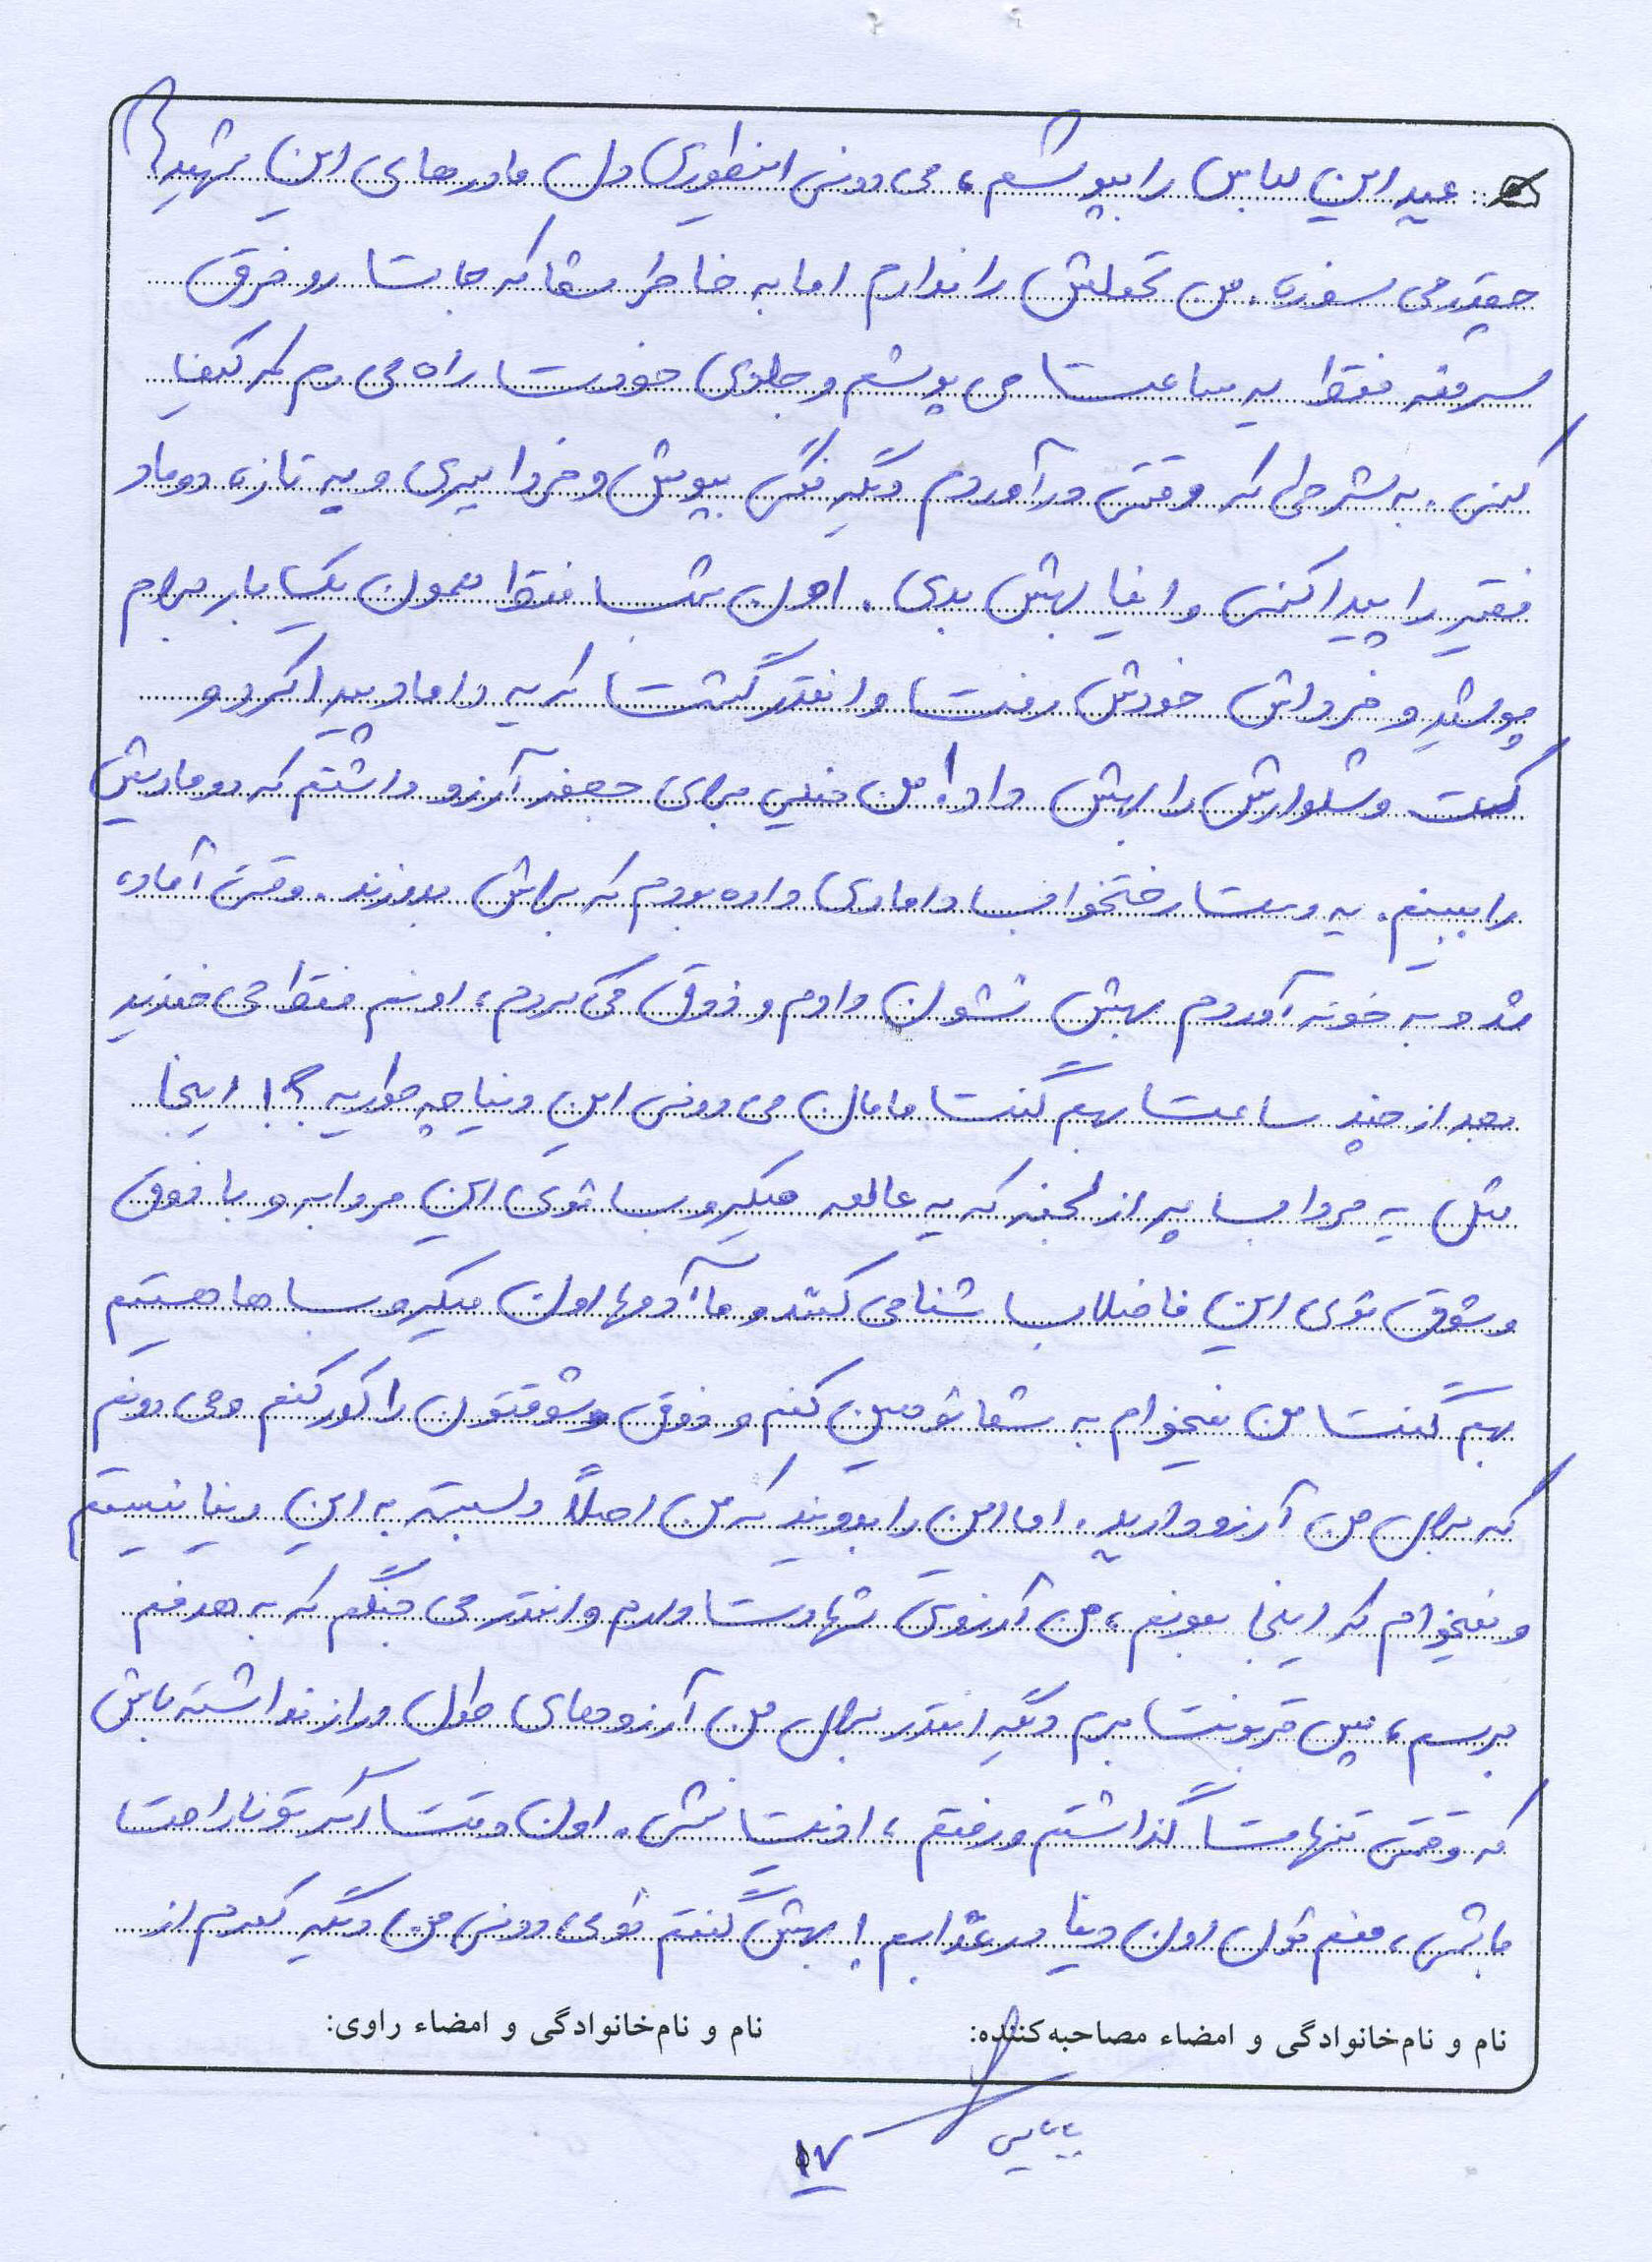 عید این لباس را بپوشم، می دونی اینطوری دل مادرهای این شهید
چقدر می سوزه. من تحملش را ندارم اما به خاطر شما که جا بت رو فرق
سر منه فقط یه ساعت می پوشم و جلوی خودت راه می رم که کیف
کنی. به شرطی که وقتی درآوردم دیگه نگی بپوش و فردا ببری و یه تازه دوماد
فقیر را پیدا کنی و اینا بهش بدی. اون شب فقط همون یک بار برام
پوشید و فرداش خودش رفت و انقدر گشت که یه داماد پیدا کرد و
کت و شلوارش را بهش داد! من خیلی برای جعفر آرزو داشتم که دومادیش
را ببینم. یه دست رختخواب دامادی داده بودم که براش بدوزند. وقتی آماده
شد و به خونه آوردم بهش نشون دادم و ذوق می کردم، اونم فقط می خندید
بعد از چند ساعت بهم گفت مامان می دونی این دنیا چه طوریه؟! اینجا
مثل یه مرداب پر از لجنه که یه عالمه میکروب توی این مردابه و با ذوق
و شوق توی این فاضلاب شنا می کنند و ما آدمها اون میکروب ها هستیم
بهم گفت من نمیخوام به شما توهین کنم و ذوق و شوقتون را کور کنم و می دونم
که برای من آرزو دارید. اما این را بدونید که من اصلاً وابسته به این دنیا نیستم
و نمیخوام که اینجا بمونم، من آرزوی شهادت دارم و انقدر می جنگم که به هدفم
برسم، پس قربونت برم دیگه انقدر برای من آرزوهای طول و دراز نداشته باش
که وقتی تنهات گذاشتم و رفتم، اذیت نشی. اون وقت اگر تو ناراحت
باشی، منم توی اون دنیا در عذابم! بهش گفتم تو می دونی من دیگه کمرم از
نام و نام‌خانوادگی و امضاء مصاحبه‌کننده: نام و نام‌خانوادگی و امضاء راوی:
بابایی
۱۷